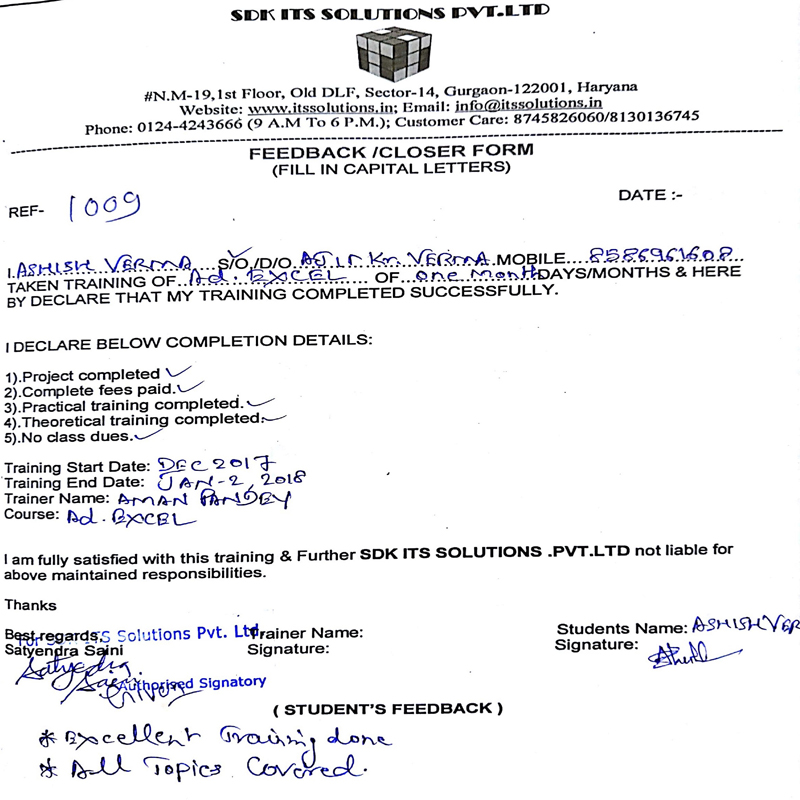 SDK ITS SOLUTIONS PVT.LTD
#N.M-19,1st Floor, Old DLF, Sector-14, Gurgaon-122001, Haryana
Website: www.itssolutions.in; Email: info@itssolutions.in
Phone: 0124-4243666 (9 A.M To 6 P.M.); Customer Care: 8745826060/8130136745
FEEDBACK /CLOSER FORM
(FILL IN CAPITAL LETTERS)
REF- 1009 DATE :-
I ASHISH VERMA S/O./D/O. Kr. VERMA MOBILE 8586961608
TAKEN TRAINING OF Ad. EXCEL OF one Month DAYS/MONTHS & HERE
BY DECLARE THAT MY TRAINING COMPLETED SUCCESSFULLY.
I DECLARE BELOW COMPLETION DETAILS:
1).Project completed ✓
2).Complete fees paid. ✓
3).Practical training completed. ✓
4).Theoretical training completed. ✓
5).No class dues. ✓
Training Start Date: DEC 2017
Training End Date: JAN-2, 2018
Trainer Name: AMAN PANDEY
Course: Ad. EXCEL
I am fully satisfied with this training & Further SDK ITS SOLUTIONS .PVT.LTD not liable for
above maintained responsibilities.
Thanks
Best regards, ITS Solutions Pvt. Ltd. Trainer Name: Students Name: ASHISH VER
Satyendra Saini Signature: Signature:
Satyendra
Saini Authorised Signatory
( STUDENT'S FEEDBACK )
* Excellent Training done
* All Topics Covered.